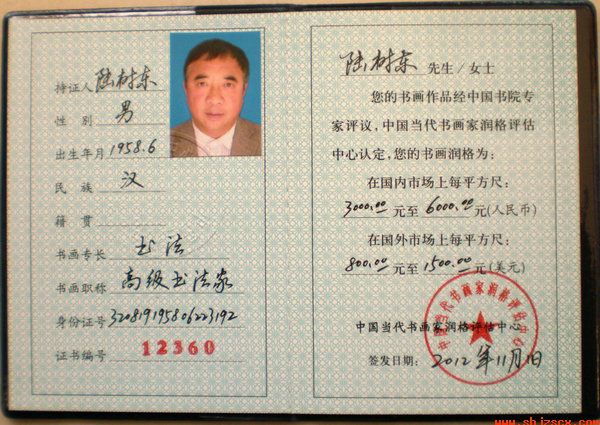 持证人 陆树东
性别 男
出生年月 1958.6
民族 汉
籍贯
书画专长 书法
书画职称 高级书法家
身份证号
证书编号 12360
陆树东 先生/女士
您的书画作品经中国书院专
家评议,中国当代书画家润格评估
中心认定,您的书画润格为:
在国内市场上每平方尺:
3000.00 元至 6000.00 元(人民币)
在国外市场上每平方尺:
800.00 元至 1500.00 元(美元)
中国当代书画家润格评估中心
中国当代书画家润格评估中心
签发日期: 2012年11月1日
www.shjzscx.com